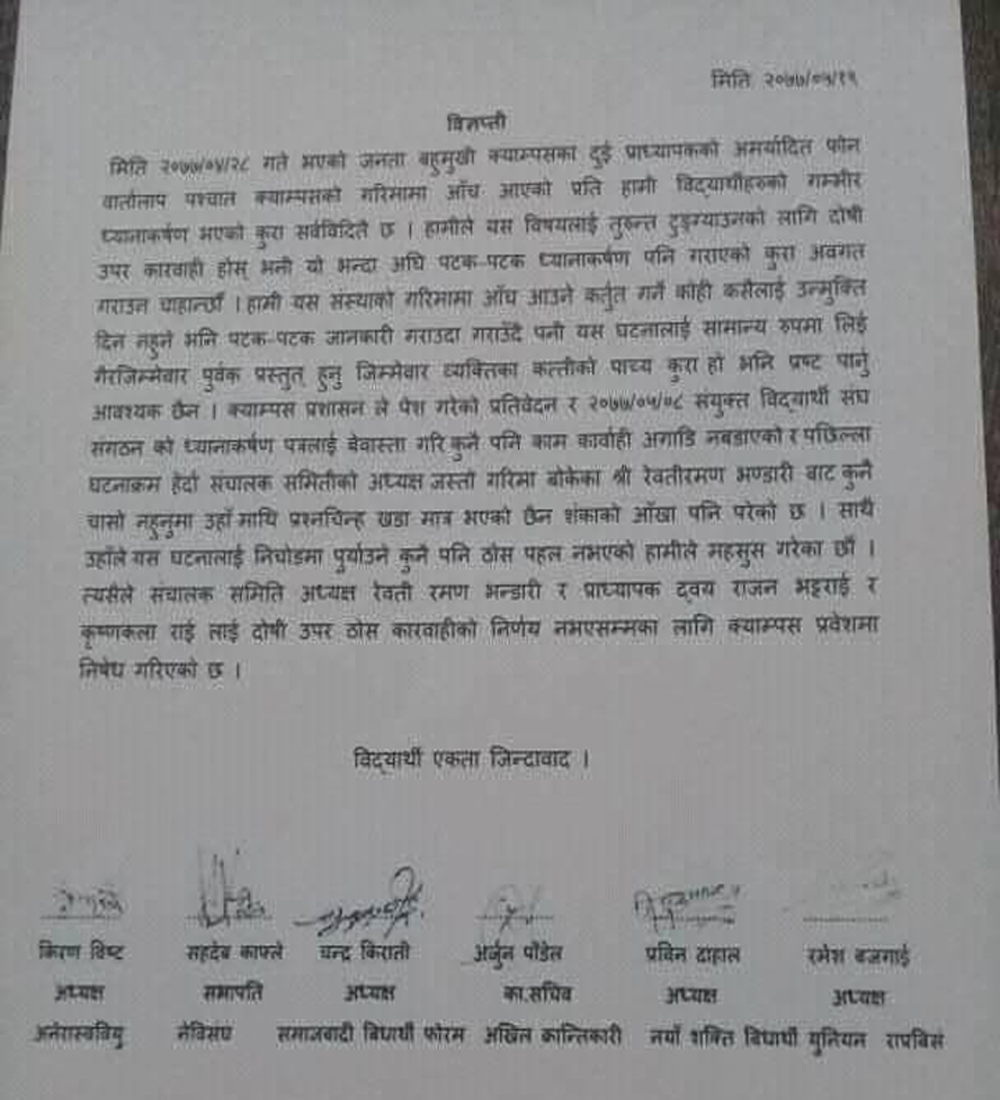 मिति २०७७/०५/१५
विज्ञप्ती
मिति २०७७/०४/२८ गते भएको जनता बहुमुखी क्याम्पसका दुई प्राध्यापकको अमर्यादित फोन
वार्तालाप पश्चात क्याम्पसको गरिमामा आँच आएको प्रति हामी विद्यार्थीहरुको गम्भीर
ध्यानाकर्षण भएको कुरा सर्वविदितै छ । हामीले यस विषयलाई तुरुन्त टुङ्ग्याउनको लागि दोषी
उपर कारवाही होस् भनी यो भन्दा अघि पटक-पटक ध्यानाकर्षण पनि गराएको कुरा अवगत
गराउन चाहान्छौं । हामी यस संस्थाको गरिमामा आँच आउने कर्तुत गर्ने कोही कसैलाई उन्मुक्ति
दिन नहुने भनि पटक-पटक जानकारी गराउदा गराउँदै पनी यस घटनालाई सामान्य रुपमा लिई
गैरजिम्मेवार पुर्वक प्रस्तुत् हुनु जिम्मेवार व्यक्तिका कत्तीको पाच्य कुरा हो भनि प्रष्ट पार्नु
आवश्यक छैन । क्याम्पस प्रशासन ले पेश गरेको प्रतिवेदन र २०७७/०५/०८ संयुक्त विद्यार्थी संघ
संगठन को ध्यानाकर्षण पत्रलाई बेवास्ता गरि कुनै पनि काम कार्वाही अगाडि नबडाएको र पछिल्ला
घटनाक्रम हेर्दा संचालक समितीको अध्यक्ष जस्तो गरिमा बोकेका श्री रेवतीरमण भण्डारी बाट कुनै
चासो नहुनुमा उहाँ माथि प्रश्नचिन्ह खडा मात्र भएको छैन शंकाको आँखा पनि परेको छ । साथै
उहाँले यस घटनालाई निचोडमा पुर्याउने कुनै पनि ठोस पहल नभएको हामीले महसुस गरेका छौं ।
त्यसैले संचालक समिति अध्यक्ष रेवती रमण भन्डारी र प्राध्यापक द्वय राजन भट्टराई र
कृष्णकला राई लाई दोषी उपर ठोस कारवाहीको निर्णय नभएसम्मका लागि क्याम्पस प्रवेशमा
निषेध गरिएको छ ।
विद्यार्थी एकता जिन्दावाद ।
किरण विष्ट सहदेव काफ्ले चन्द्र किराती अर्जुन पौडेल प्रविन दाहाल रमेश बजगाई
अध्यक्ष सभापति अध्यक्ष का.सचिव अध्यक्ष अध्यक्ष
अनेरास्ववियु नेविसंघ समाजवादी बिधार्थी फोरम अखिल क्रान्तिकारी नयाँ शक्ति बिधार्थी युनियन रापबिसं